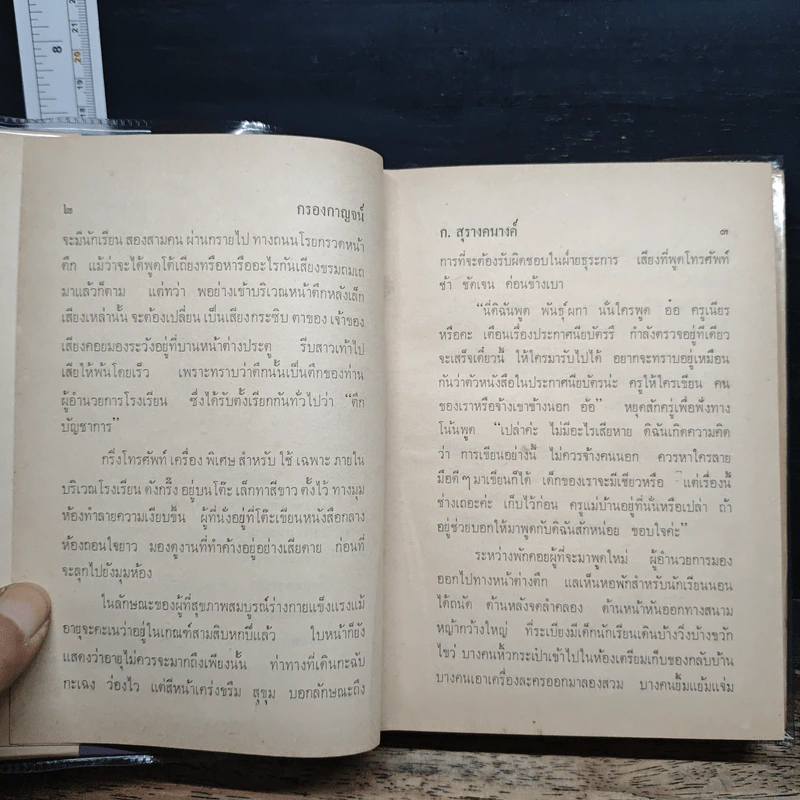 8
20
19
18
๒ กรองกาญจน์
จะมีนักเรียน สองสามคน ผ่านกรายไป ทางถนนโรยกรวดหน้า
ตึก แม้ว่าจะได้พูดโต้เถียงหรือหารืออะไรกันเสียงขรมถมเถ
มาแล้วก็ตาม แต่ทว่า พอย่างเข้าบริเวณหน้าตึกหลังเล็ก
เสียงเหล่านั้น จะต้องเปลี่ยน เป็นเสียงกระซิบ ตาของ เจ้าของ
เสียงคอยมองระวังอยู่ที่บานหน้าต่างประตู รีบสาวเท้าไป
เสียให้พ้นโดยเร็ว เพราะทราบว่าตึกนั้นเป็นตึกของท่าน
ผู้อำนวยการโรงเรียน ซึ่งได้รับตั้งเรียกกันทั่วไปว่า “ตึก
บัญชาการ”
กริ่งโทรศัพท์ เครื่อง พิเศษ สำหรับ ใช้ เฉพาะ ภายใน
บริเวณโรงเรียน ดังกริ๊ง อยู่บนโต๊ะ เล็กทาสีขาว ตั้งไว้ ทางมุม
ห้องทำลายความเงียบขึ้น ผู้ที่นั่งอยู่ที่โต๊ะเขียนหนังสือกลาง
ห้องถอนใจยาว มองดูงานที่ทำค้างอยู่อย่างเสียดาย ก่อนที่
จะลุกไปยังมุมห้อง
ในลักษณะของผู้ที่สุขภาพสมบูรณ์ร่างกายแข็งแรงแม้
อายุจะคะเนว่าอยู่ในเกณฑ์สามสิบหกปีแล้ว ใบหน้าก็ยัง
แสดงว่าอายุไม่ควรจะมากถึงเพียงนั้น ท่าทางที่เดินกะฉับ
กะเฉง ว่องไว แต่สีหน้าเคร่งขรึม สุขุม บอกลักษณะถึง
ก. สุรางคนางค์ ๓
การที่จะต้องรับผิดชอบในฝ่ายธุระการ เสียงที่พูดโทรศัพท์
ช้า ชัดเจน ค่อนข้างเบา
“นี่ดิฉันพูด พันธุ์ผกา นั่นใครพูด อ๋อ ครูเนียร
หรือคะ เตือนเรื่องประกาศนียบัตรรึ กำลังตรวจอยู่ทีเดียว
จะเสร็จเดี๋ยวนี้ ให้ใครมารับไปได้ อยากจะทราบอยู่เหมือน
กันว่าตัวหนังสือในประกาศนียบัตรน่ะ ครูให้ใครเขียน คน
ของเราหรือจ้างเขาข้างนอก อ้อ” หยุดสักครู่เพื่อฟังทาง
โน้นพูด “เปล่าค่ะ ไม่มีอะไรเสียหาย ดิฉันเกิดความคิด
ว่า การเขียนอย่างนี้ ไม่ควรจ้างคนนอก ควรหาใครลาย
มือดี ๆ มาเขียนก็ได้ เด็กของเราจะมีเชียวหรือ แต่เรื่องนี้
ช่างเถอะค่ะ เก็บไว้ก่อน ครูแม่บ้านอยู่ที่นั่นหรือเปล่า ถ้า
อยู่ช่วยบอกให้มาพูดกับดิฉันสักหน่อย ขอบใจค่ะ”
ระหว่างพักคอยผู้ที่จะมาพูดใหม่ ผู้อำนวยการมอง
ออกไปทางหน้าต่างตึก แลเห็นหอพักสำหรับนักเรียนนอน
ได้ถนัด ด้านหลังจดลำคลอง ด้านหน้าหันออกทางสนาม
หญ้ากว้างใหญ่ ที่ระเบียงมีเด็กนักเรียนเดินบ้างวิ่งบ้างขวัก
ไขว่ บางคนหิ้วกระเป๋าเข้าไปในห้องเตรียมเก็บของกลับบ้าน
บางคนเอาเครื่องละครออกมาลองสวม บางคนยิ้มแย้มแจ่ม